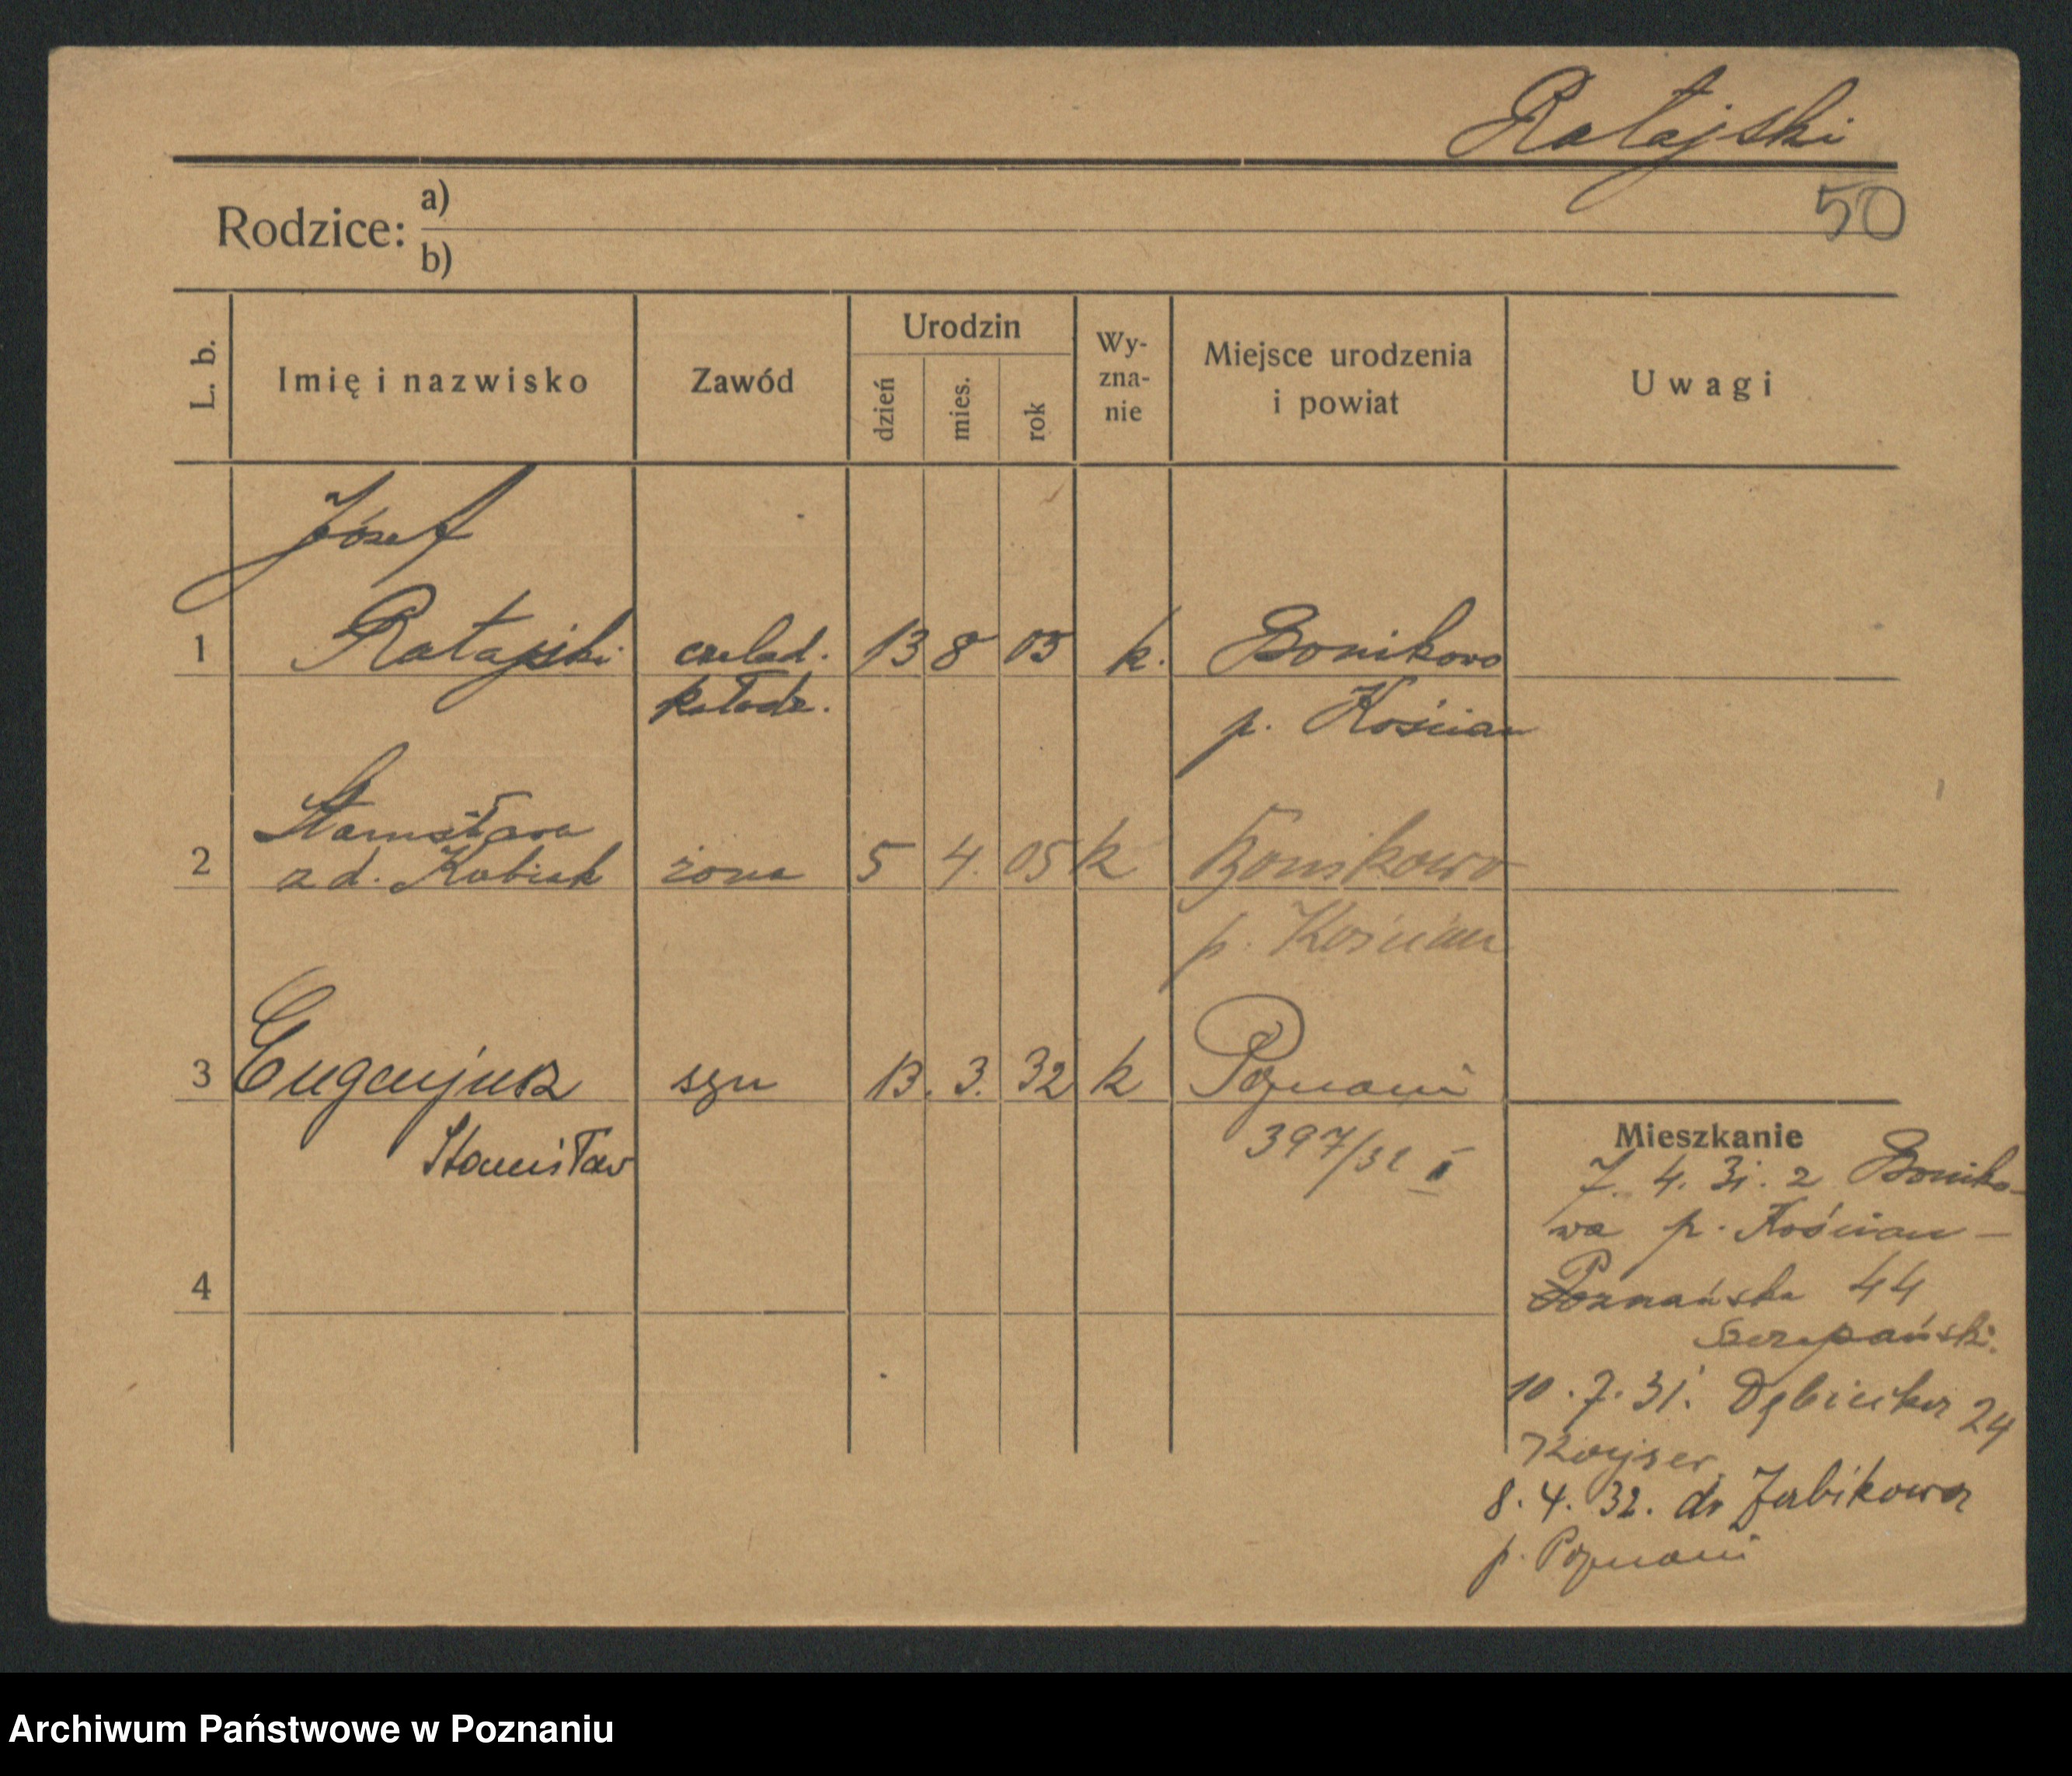 Ratajski
50
Rodzice: a)
b)
L. b.
Imię i nazwisko
Zawód
Urodzin
dzień
mies.
rok
Wy-
zna-
nie
Miejsce urodzenia
i powiat
Uwagi
Józef
1 Ratajski czelad. 13 8 05 k. Bonikowo
kołodz. p. Kościan
Stanisława
2 z d. Kubiak żona 5 4. 05 k Bonikowo
p. Kościan
3 Eugenjusz syn 13. 3. 32 k Poznań
Stanisław 397/32 I
4
Mieszkanie
7. 4. 31. z Boniko-
wa p. Kościan –
Poznańska 44
Szczepański.
10. 7. 31. Dębiecka 24
8. 4. 32. do Żabikowa
p. Poznań
Archiwum Państwowe w Poznaniu